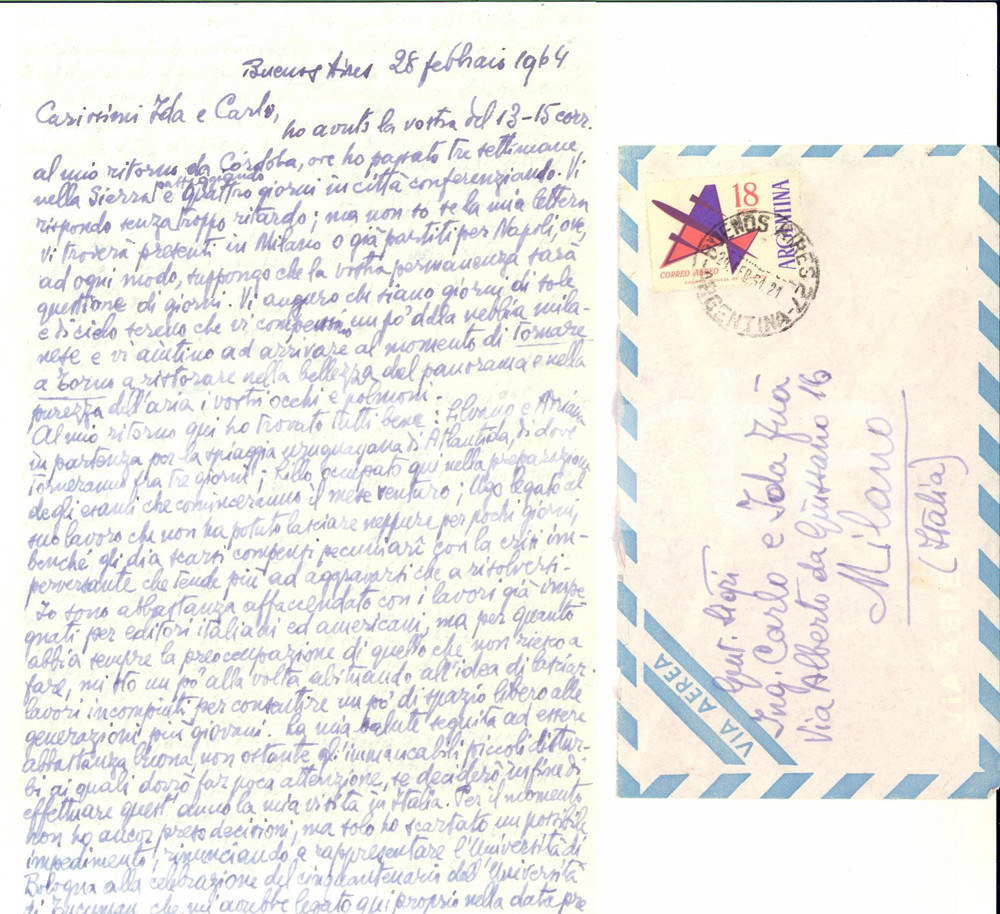 Buenos Aires 28 febbraio 1964
Carissimi Ida e Carlo,
ho avuto la vostra del 13-15 corr.
al mio ritorno da Córdoba, ove ho passato tre settimane
passeggiando
nella Sierra e quattro giorni in città conferenziando. Vi
rispondo senza troppo ritardo; ma non so se la mia lettera
vi troverà presenti in Milano o già partiti per Napoli, ove,
ad ogni modo, suppongo che la vostra permanenza sarà
questione di giorni. Vi auguro che siano giorni di sole
e di cielo sereno che vi compensino un po' della nebbia mila-
nese e vi aiutino ad arrivare al momento di tornare
a Torno a ristorare nella bellezza del panorama e nella
purezza dell'aria i vostri occhi e polmoni.
Al mio ritorno qui ho trovato tutti bene: Silvano e Adriana
in partenza per la spiaggia uruguayana di Atlantida, di dove
torneranno fra tre giorni; Lillo occupato qui nella preparazione
degli esami che cominceranno il mese venturo; Ugo legato al
suo lavoro che non ha potuto lasciare neppure per pochi giorni,
benché gli dia scarsi compensi pecuniarî con la crisi im-
perversante che tende più ad aggravarsi che a risolversi.-
Io sono abbastanza affaccendato con i lavori già impe
gnati per editori italiani ed americani, ma per quanto
abbia sempre la preoccupazione di quello che non riesco a
fare, mi sto un po' alla volta abituando all'idea di lasciar
lavori incompiuti per consentire un po' di spazio libero alle
generazioni più giovani. La mia salute seguita ad essere
abbastanza buona, non ostante gl'immancabili piccoli distur-
bi ai quali dovrò far poca attenzione, se deciderò infine di
effettuare quest'anno la mia visita in Italia. Per il momento
non ho ancor preso decisioni, ma solo ho scartato un possibile
impedimento, rinunciando a rappresentare l'Università di
Bologna alla celebrazione del cinquantenario dell'Università
di Tucuman, che m'avrebbe legato qui proprio nella data pre
18
ARGENTINA
CORREO AEREO
BUENOS AIRES
ARGENTINA
VIA AEREA
Gent. Sigri
Ing. Carlo e Ida Fuà
Via Alberto da Giussano 16
Milano
(Italia)
VIA AEREA